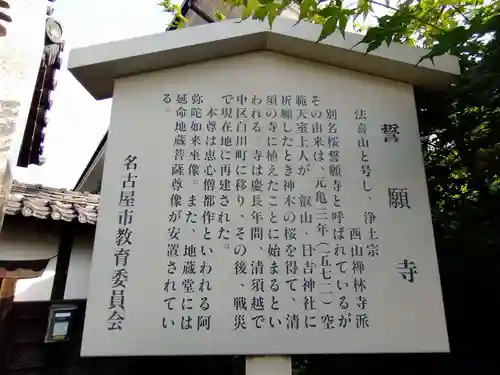 誓願寺
法喜山と号し、浄土宗
西山禅林寺派
別名桜誓願寺と呼ばれているが
その由来は、元亀三年（一五七二）空
範天室上人が、叡山・日吉神社に
祈願したとき神木の桜を得て、清
須の寺に植えたことに始まるとい
われる。寺は慶長年間、清須越で
中区白川町に移り、その後、戦災
で現在地に再建された。
本尊は恵心僧都作といわれる阿
弥陀如来坐像。また、地蔵堂には
延命地蔵菩薩尊像が安置されてい
る。
名古屋市教育委員会